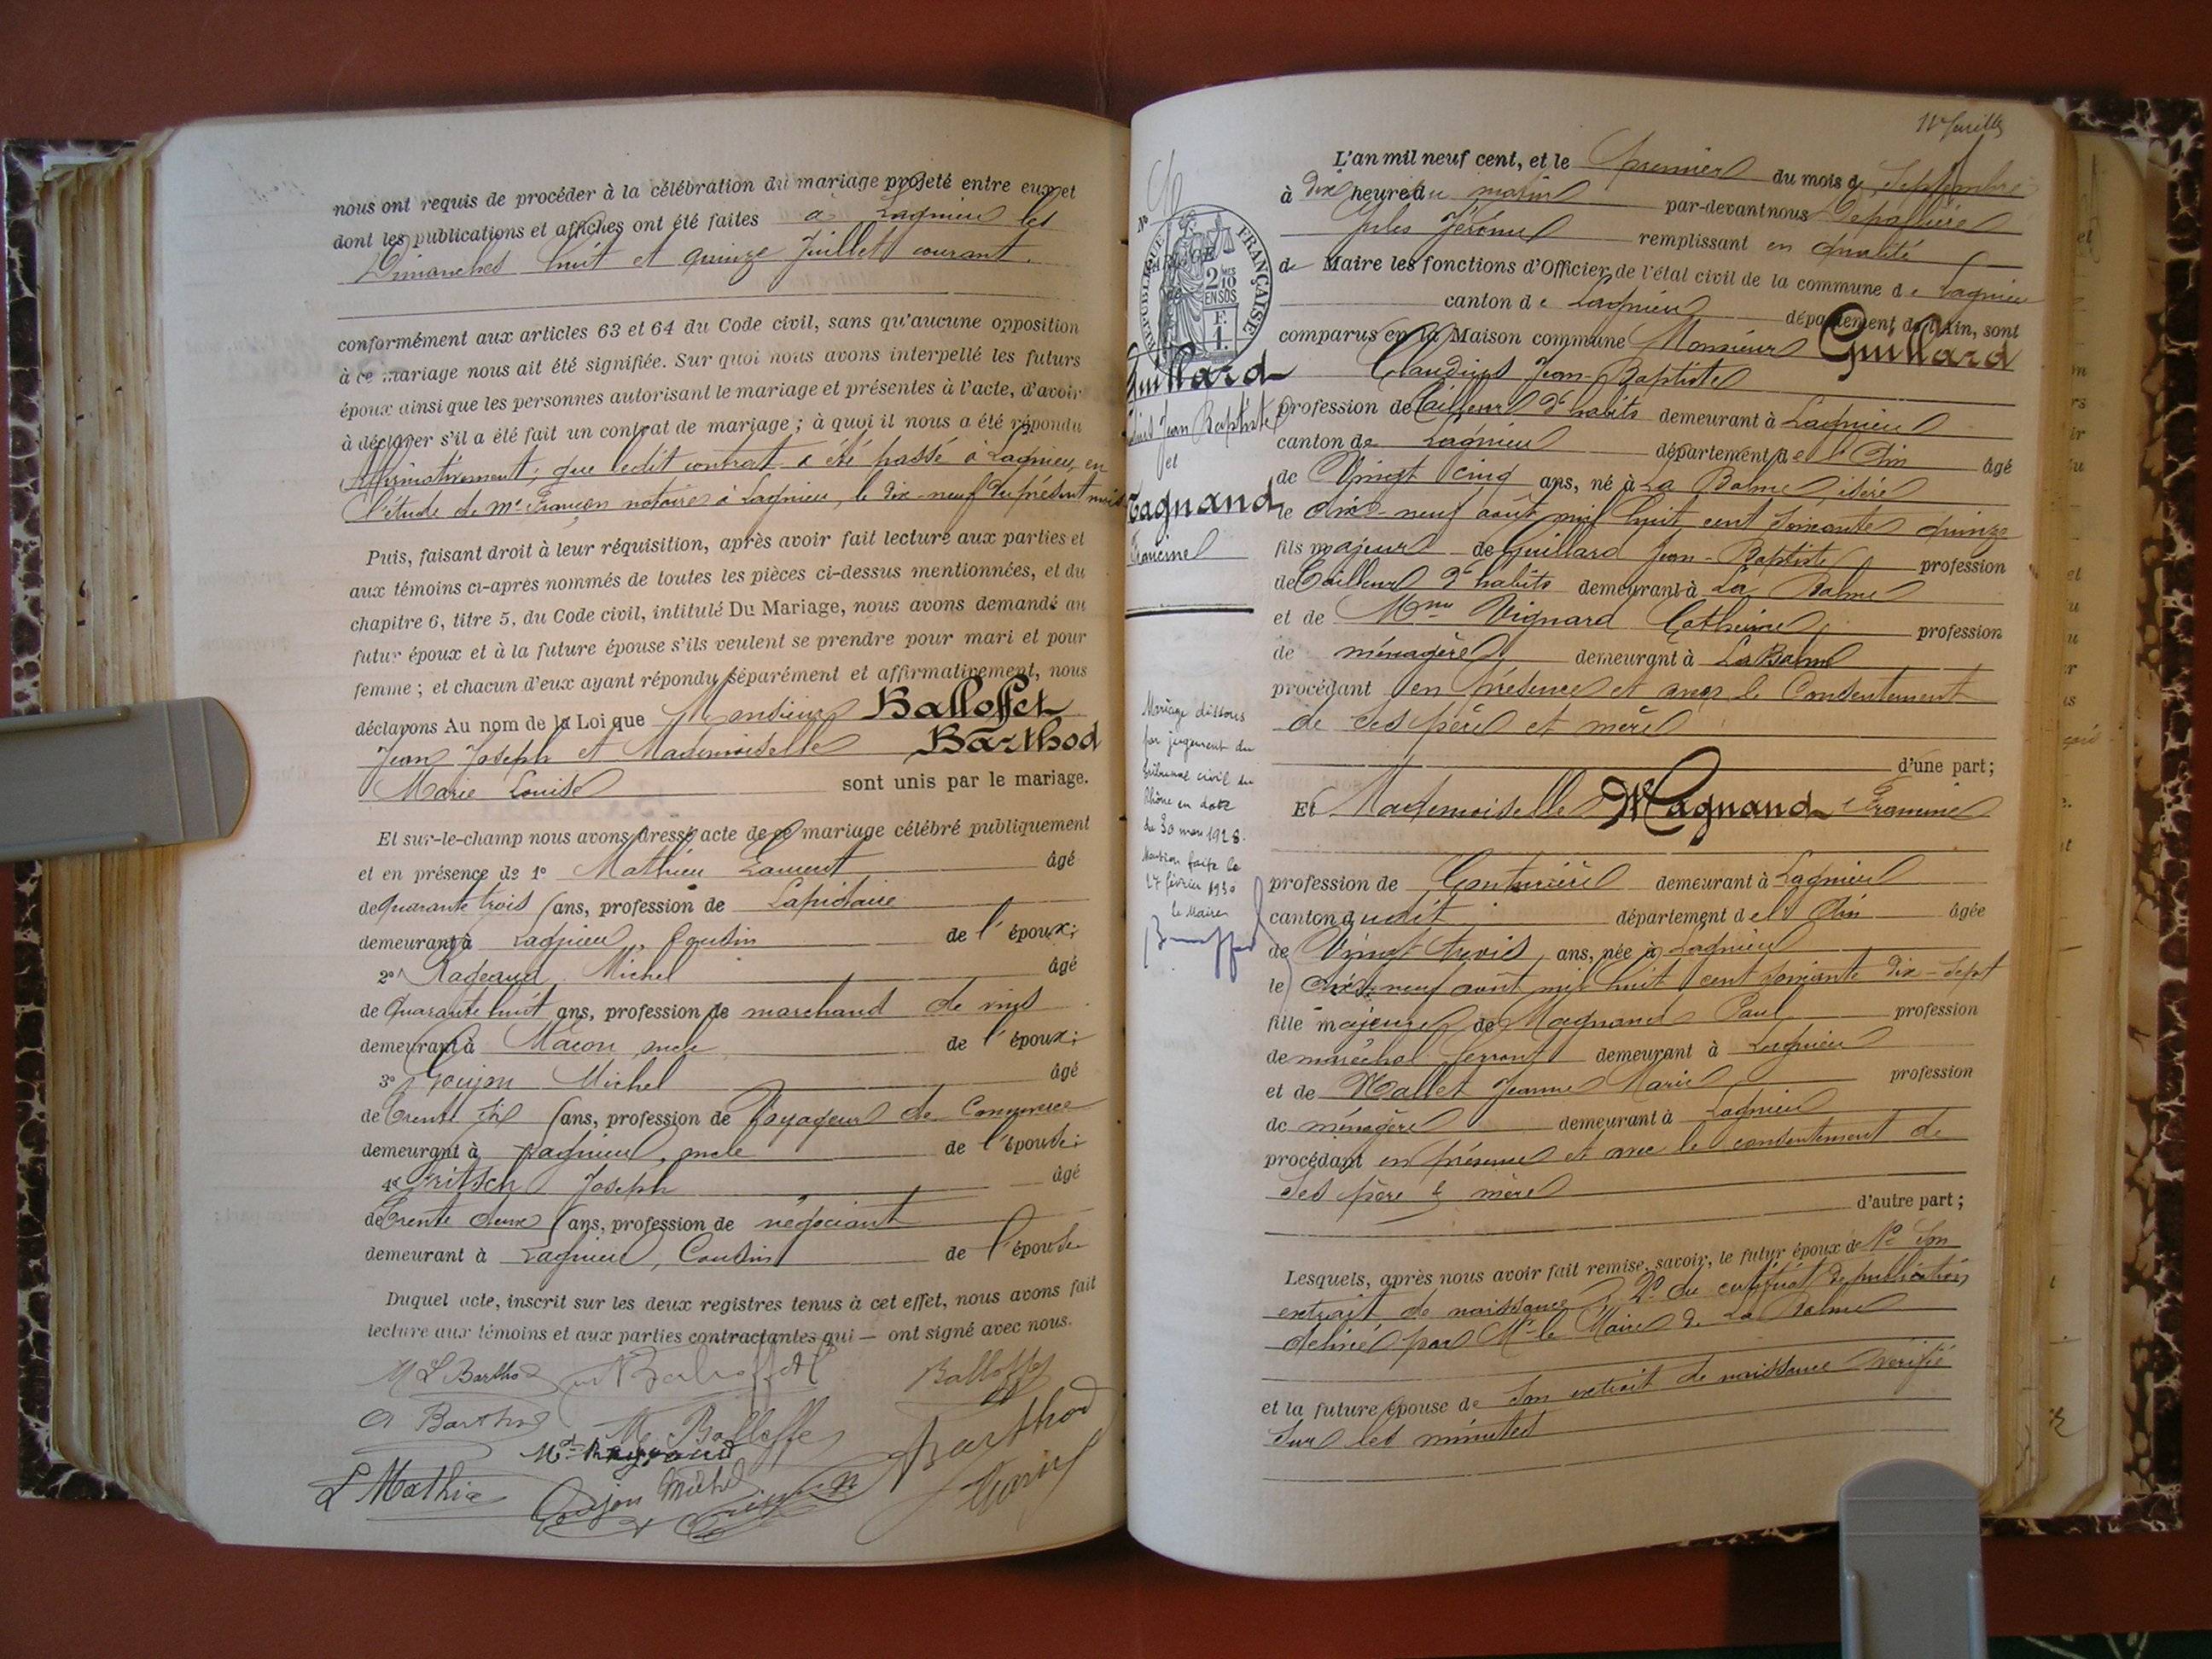 nous ont requis de procéder à la célébration du mariage projeté entre eux et
dont les publications et affiches ont été faites à Lagnieu les
Dimanches huit et quinze Juillet courant.
conformément aux articles 63 et 64 du Code civil, sans qu'aucune opposition
à ce mariage nous ait été signifiée. Sur quoi nous avons interpellé les futurs
époux ainsi que les personnes autorisant le mariage et présentes à l'acte, d'avoir
à déclarer s'il a été fait un contrat de mariage ; à quoi il nous a été répondu
affirmativement, que ledit contrat a été passé à Lagnieu, en
l'étude de Me Françon notaire à Lagnieu, le dix-neuf du présent mois
Puis, faisant droit à leur réquisition, après avoir fait lecture aux parties et
aux témoins ci-après nommés de toutes les pièces ci-dessus mentionnées, et du
chapitre 6, titre 5, du Code civil, intitulé Du Mariage, nous avons demandé au
futur époux et à la future épouse s'ils veulent se prendre pour mari et pour
femme ; et chacun d'eux ayant répondu séparément et affirmativement, nous
déclarons Au nom de la Loi que Monsieur Balloffet
Jean Joseph et Mademoiselle Barthod
Marie Louise sont unis par le mariage.
Et sur-le-champ nous avons dressé acte de ce mariage célébré publiquement
et en présence de 1° Mathieu Laurent âgé
de quarante trois ans, profession de Lapidaire
demeurant à Lagnieu, Cousin de l'époux;
2° Michel âgé
de quarante huit ans, profession de marchand de vins
demeurant à Macon, oncle de l'époux;
3° Goujon Michel âgé
de trente six ans, profession de Voyageur de Commerce
demeurant à Lagnieu, oncle de l'épouse;
4° Fritsch Joseph âgé
de trente deux ans, profession de négociant
demeurant à Lagnieu, Cousin de l'épouse
Duquel acte, inscrit sur les deux registres tenus à cet effet, nous avons fait
lecture aux témoins et aux parties contractantes qui — ont signé avec nous.
M L Barthod Balloffet
Barthod M Balloffet
L Mathieu Goujon Michel Barthod
L'an mil neuf cent, et le premier du mois de Septembre
à Dix heure du matin par-devant nous
Jules Jérôme remplissant en qualité
de Maire les fonctions d'Officier de l'état civil de la commune de Lagnieu
canton de Lagnieu département de l'Ain, sont
comparus en la Maison commune Monsieur Guillard
Claudius Jean-Baptiste
profession de Tailleur d'habits demeurant à Lagnieu
canton de Lagnieu département de l'Ain âgé
de Vingt cinq ans, né à La Balme isère
le dix-neuf août mil huit cent soixante quinze
fils majeur de Guillard Jean-Baptiste profession
de Tailleur d'habits demeurant à La Balme
et de Mme Vignard Catherine profession
de ménagère demeurant à La Balme
procédant en présence et avec le Consentement
de ses père et mère
d'une part;
Et Mademoiselle Magnand Francine
profession de Couturière demeurant à Lagnieu
canton dudit département de l'Ain âgée
de Vingt trois ans, née à Lagnieu
le dix neuf août mil huit cent soixante dix-sept
fille majeure de Magnand Paul profession
de maréchal ferrant demeurant à Lagnieu
et de Mallet Jeanne Marie profession
de ménagère demeurant à Lagnieu
procédant en présence et avec le consentement de
ses père & mère
d'autre part;
Lesquels, après nous avoir fait remise, savoir, le futur époux de 1° Son
extrait de naissance 2° du certificat de publication
délivré par Mr le Maire de La Balme
et la future épouse de Son extrait de naissance verifié
sur les minutes
N°
RÉPUBLIQUE FRANÇAISE
2 MES 10 EN SUS
F. 1.
Guillard
Jean Baptiste
et
Magnand
Francine
Mariage dissous
par jugement du
tribunal civil du
Rhône en date
du 30 mars 1928.
Mention faite le
27 février 1930
le Maire